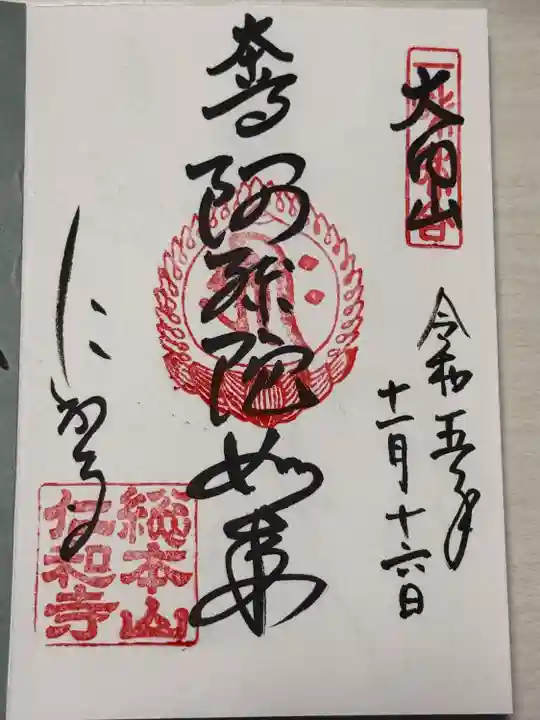 大内山
令和五年
十一月十六日
本尊
阿弥陀如来
にわじ
総本山
仁和寺